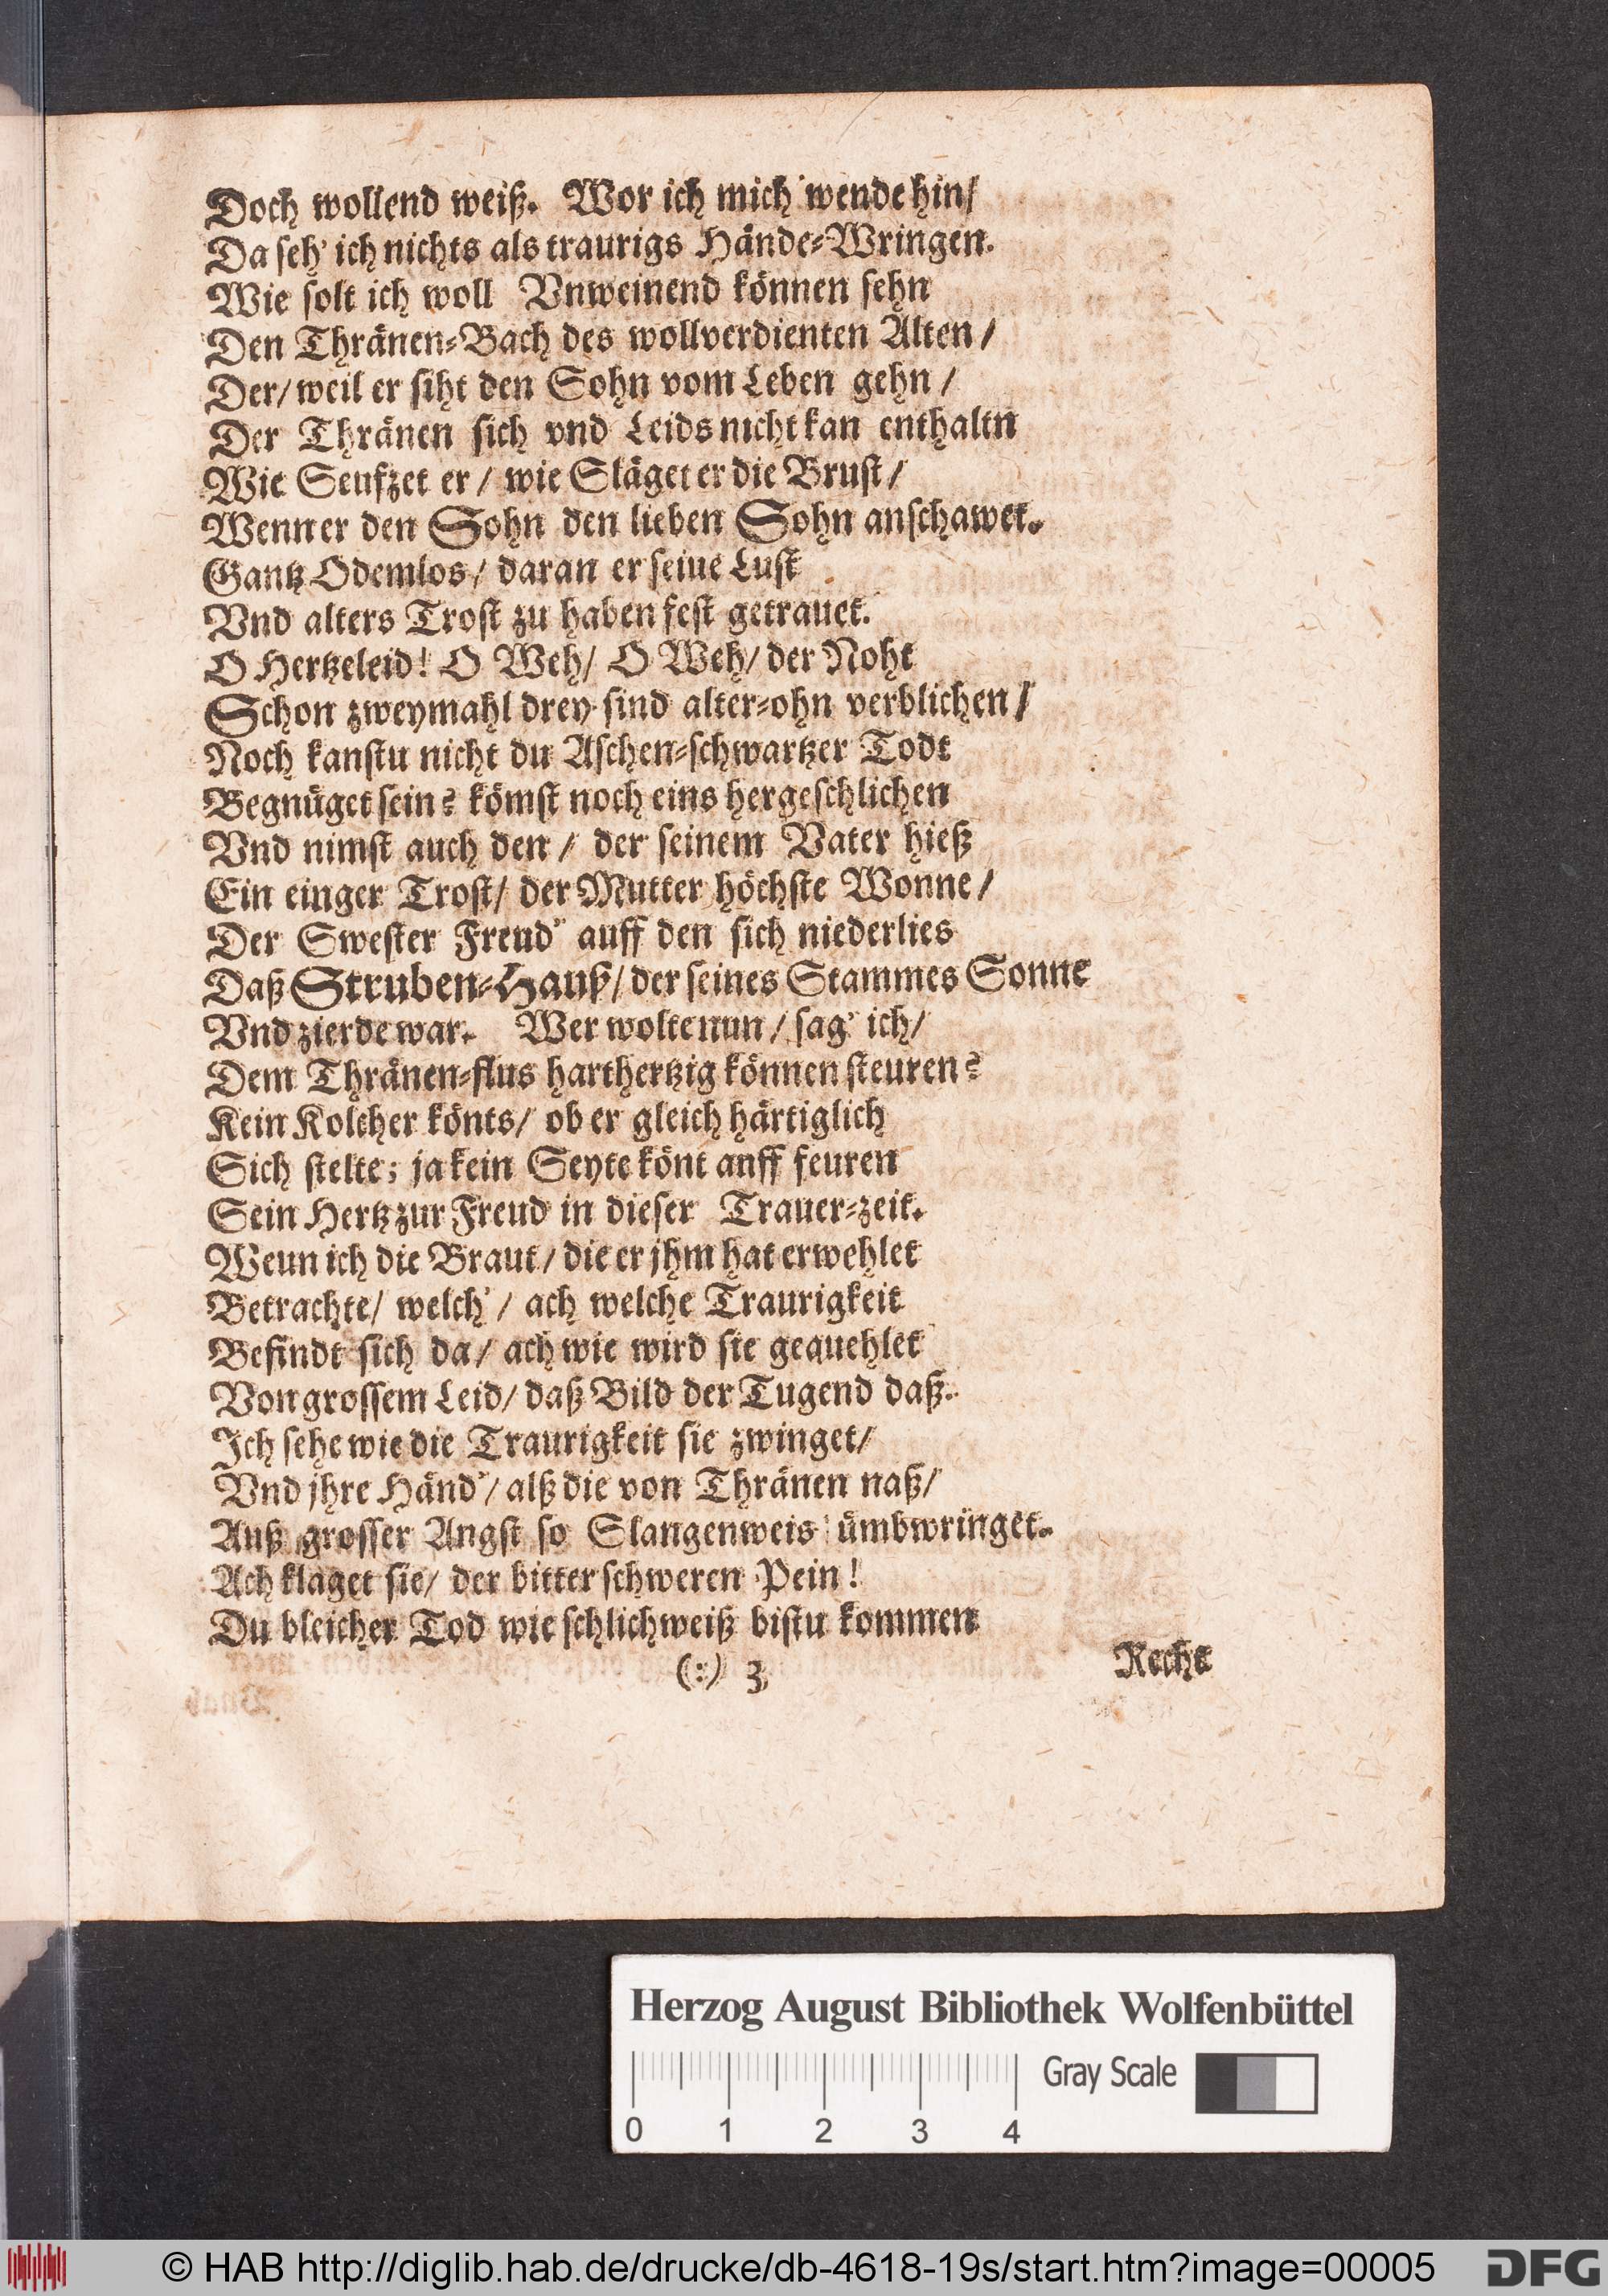 Doch wollend weiß. Wor ich mich wende hin/
Da seh' ich nichts als traurigs Hände-Wringen.
Wie solt ich woll Vnweinend können sehn
Den Thränen-Bach des wollverdienten Alten/
Der/ weil er siht den Sohn vom Leben gehn/
Der Thränen sich vnd Leids nicht kan enthaltn
Wie Seufzet er/ wie Släget er die Brust/
Wenn er den Sohn den lieben Sohn anschawet.
Gantz Odemlos/ daran er seiue Lust
Vnd alters Trost zu haben fest getrauet.
O Hertzeleid! O Weh/ O Weh/ der Noht
Schon zweymahl drey sind alter-ohn verblichen/
Noch kanstu nicht du Aschen-schwartzer Todt
Begnüget sein? kömst noch eins hergeschlichen
Vnd nimst auch den/ der seinem Vater hieß
Ein einger Trost/ der Mutter höchste Wonne/
Der Swester Freud' auff den sich niederlies
Daß Struben-Hauß/ der seines Stammes Sonne
Vnd zierde war. Wer wolte nun/ sag' ich/
Dem Thränen-flus harthertzig können steuren?
Kein Kolcher könts/ ob er gleich härtiglich
Sich stelte; ja kein Seyte könt anff feuren
Sein Hertz zur Freud in dieser Trauer-zeit.
Weun ich die Braut/ die er jhm hat erwehlet
Betrachte/ welch'/ ach welche Traurigkeit
Befindt sich da/ ach wie wird sie gequehlet
Von grossem Leid/ daß Bild der Tugend daß.
Ich sehe wie die Traurigkeit sie zwinget/
Vnd jhre Händ'/ alß die von Thränen naß/
Auß grosser Angst so Slangenweis ümbwringet.
Ach klaget sie/ der bitter schweren Pein!
Du bleicher Tod wie schlichweiß bistu kommen
(:) 3
Recht
Herzog August Bibliothek Wolfenbüttel
Gray Scale
0 1 2 3 4
© HAB http://diglib.hab.de/drucke/db-4618-19s/start.htm?image=00005
DFG